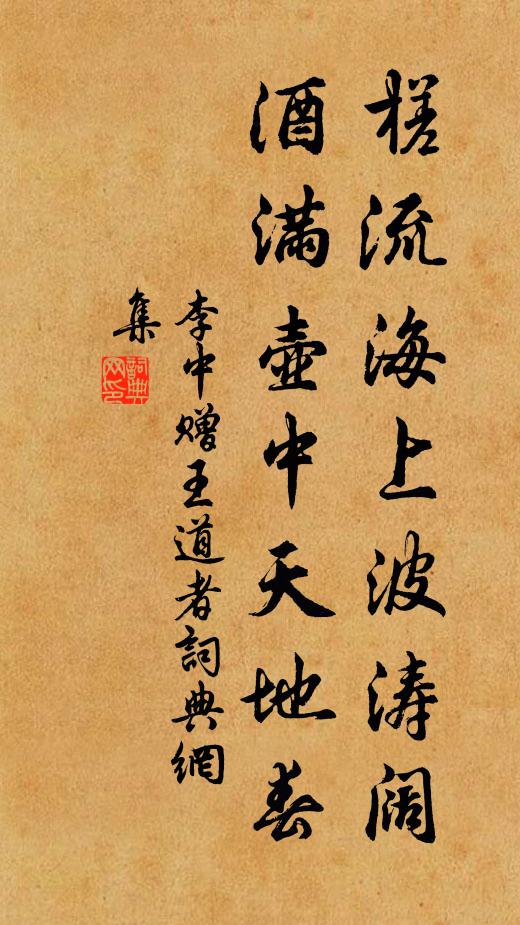 槎流海上波涛阔
酒满壶中天地春
李中赠王道者詞典網
集
詞典
网印